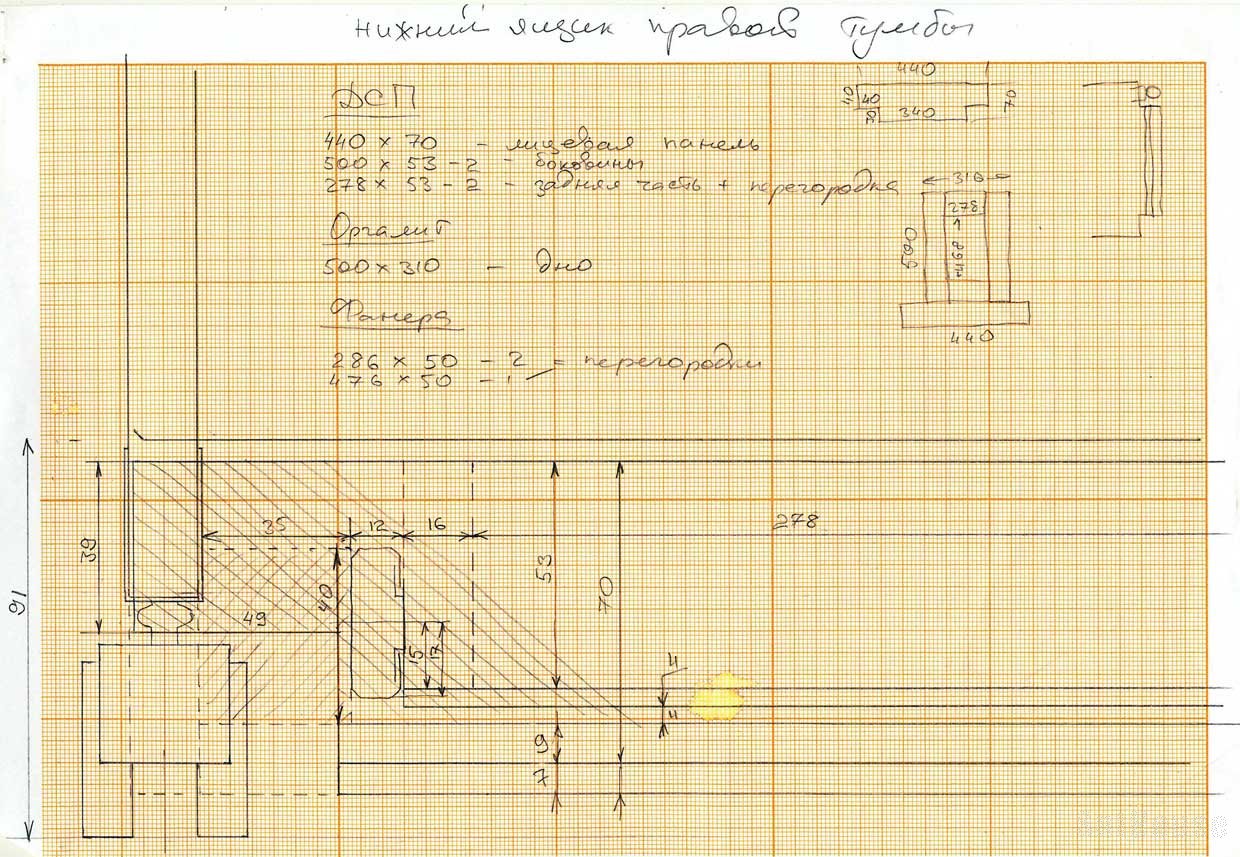 нижний ящик правой тумбы
ДСП
440 × 70 - лицевая панель
500 × 53 - 2 - боковины
278 × 53 - 2 - задняя часть + перегородка
Оргалит
500 × 310 - дно
Фанера
286 × 50 - 2 = перегородки
476 × 50 - 1
440
40
40
30
340
70
310
278
500
468
440
35
12
16
278
39
91
53
70
40
49
15
17
4
4
9
7